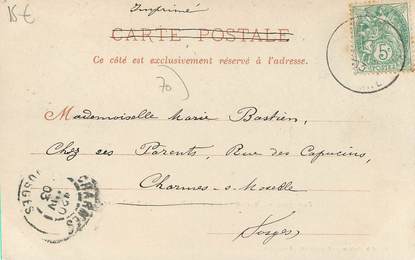 15€
Imprimé
CARTE POSTALE
Ce côté est exclusivement réservé à l'adresse.
70
5c
Mademoiselle Marie Bastien,
Chez ses Parents, Rue des Capucins,
Charmes-s-Moselle
Vosges
CHARMES
VOSGES
03